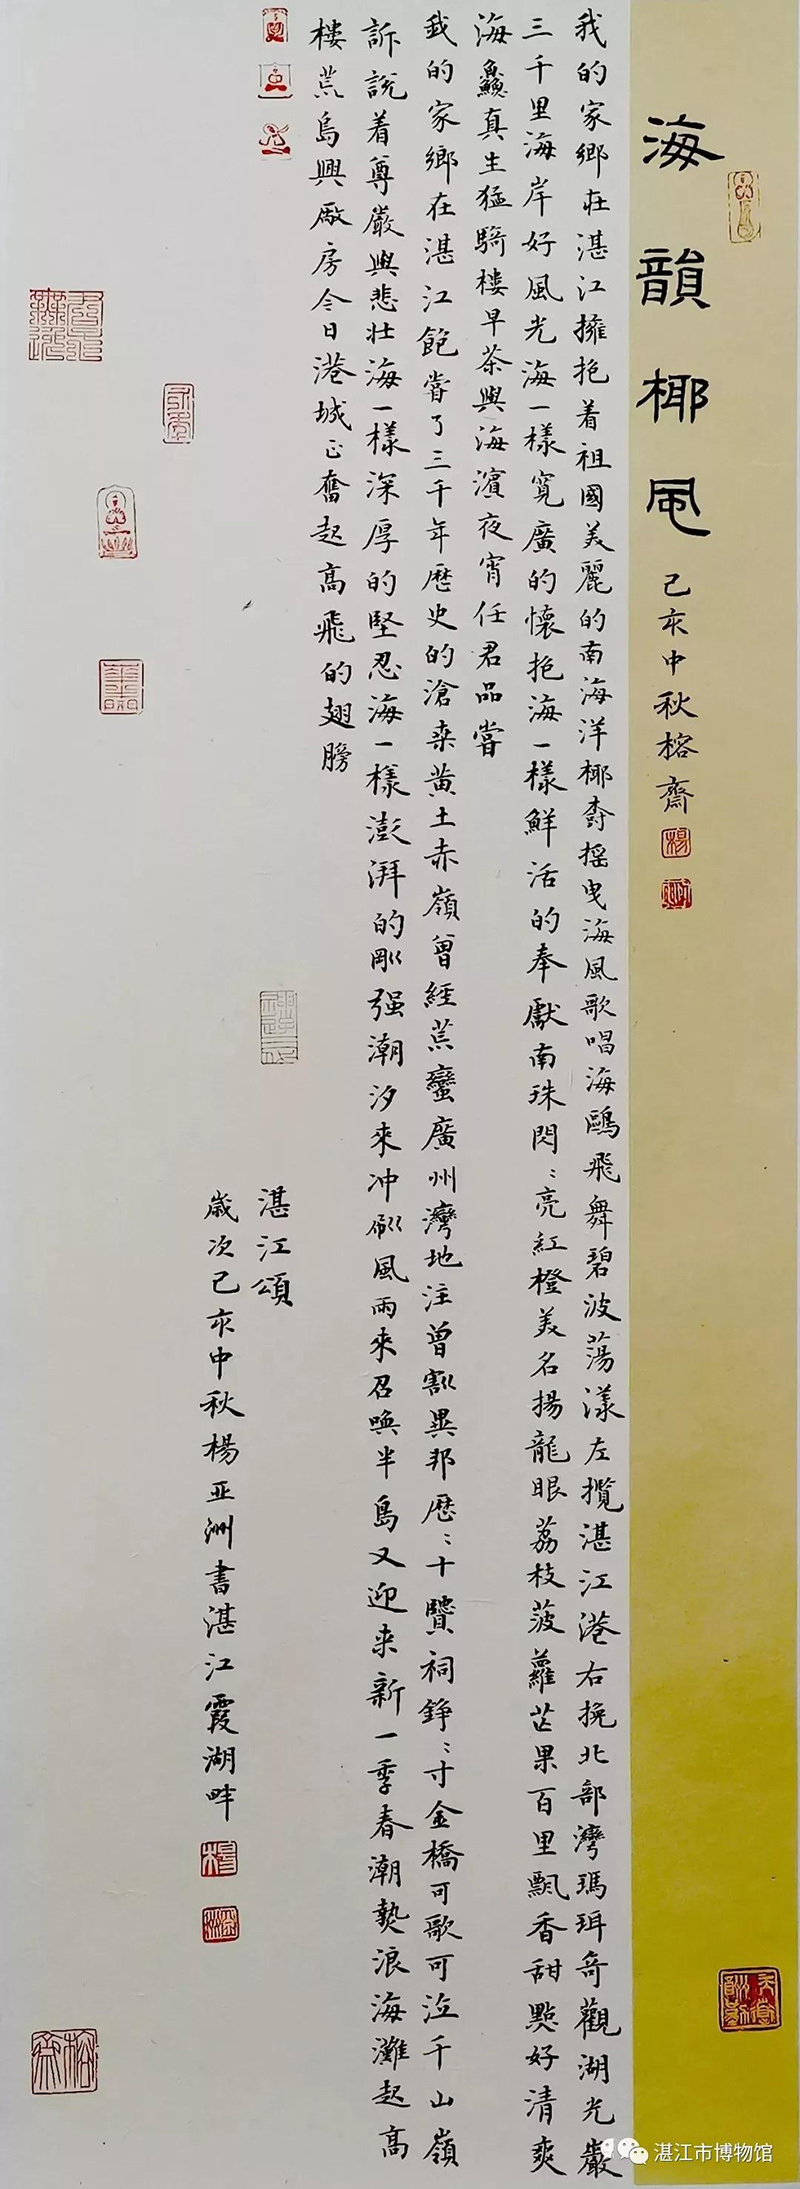 海韻椰風
己亥中秋榕齋
我的家鄉在湛江擁抱着祖國美麗的南海洋椰樹摇曳海風歌唱海鷗飛舞碧波蕩漾左攬湛江港右挽北部灣瑪珥奇觀湖光巖
三千里海岸好風光海一樣寬廣的懷抱海一樣鮮活的奉獻南珠閃〻亮紅橙美名揚龍眼荔枝菠蘿芒果百里飄香甜點好清爽
海鱻真生猛騎樓早茶與海濱夜宵任君品嘗
我的家鄉在湛江飽嘗了三千年歷史的滄桑黄土赤嶺曾經荒蠻廣州灣地注曾割異邦歷〻十賢祠錚〻寸金橋可歌可泣千山嶺
訴説着尊嚴與悲壯海一樣深厚的堅忍海一樣澎湃的剛强潮汐來冲刷風雨來召唤半島又迎来新一季春潮熱浪海灘起高
樓荒島興廠房今日港城正奮起高飛的翅膀
湛江頌
歲次己亥中秋楊亞洲書湛江霞湖畔
湛江市博物馆